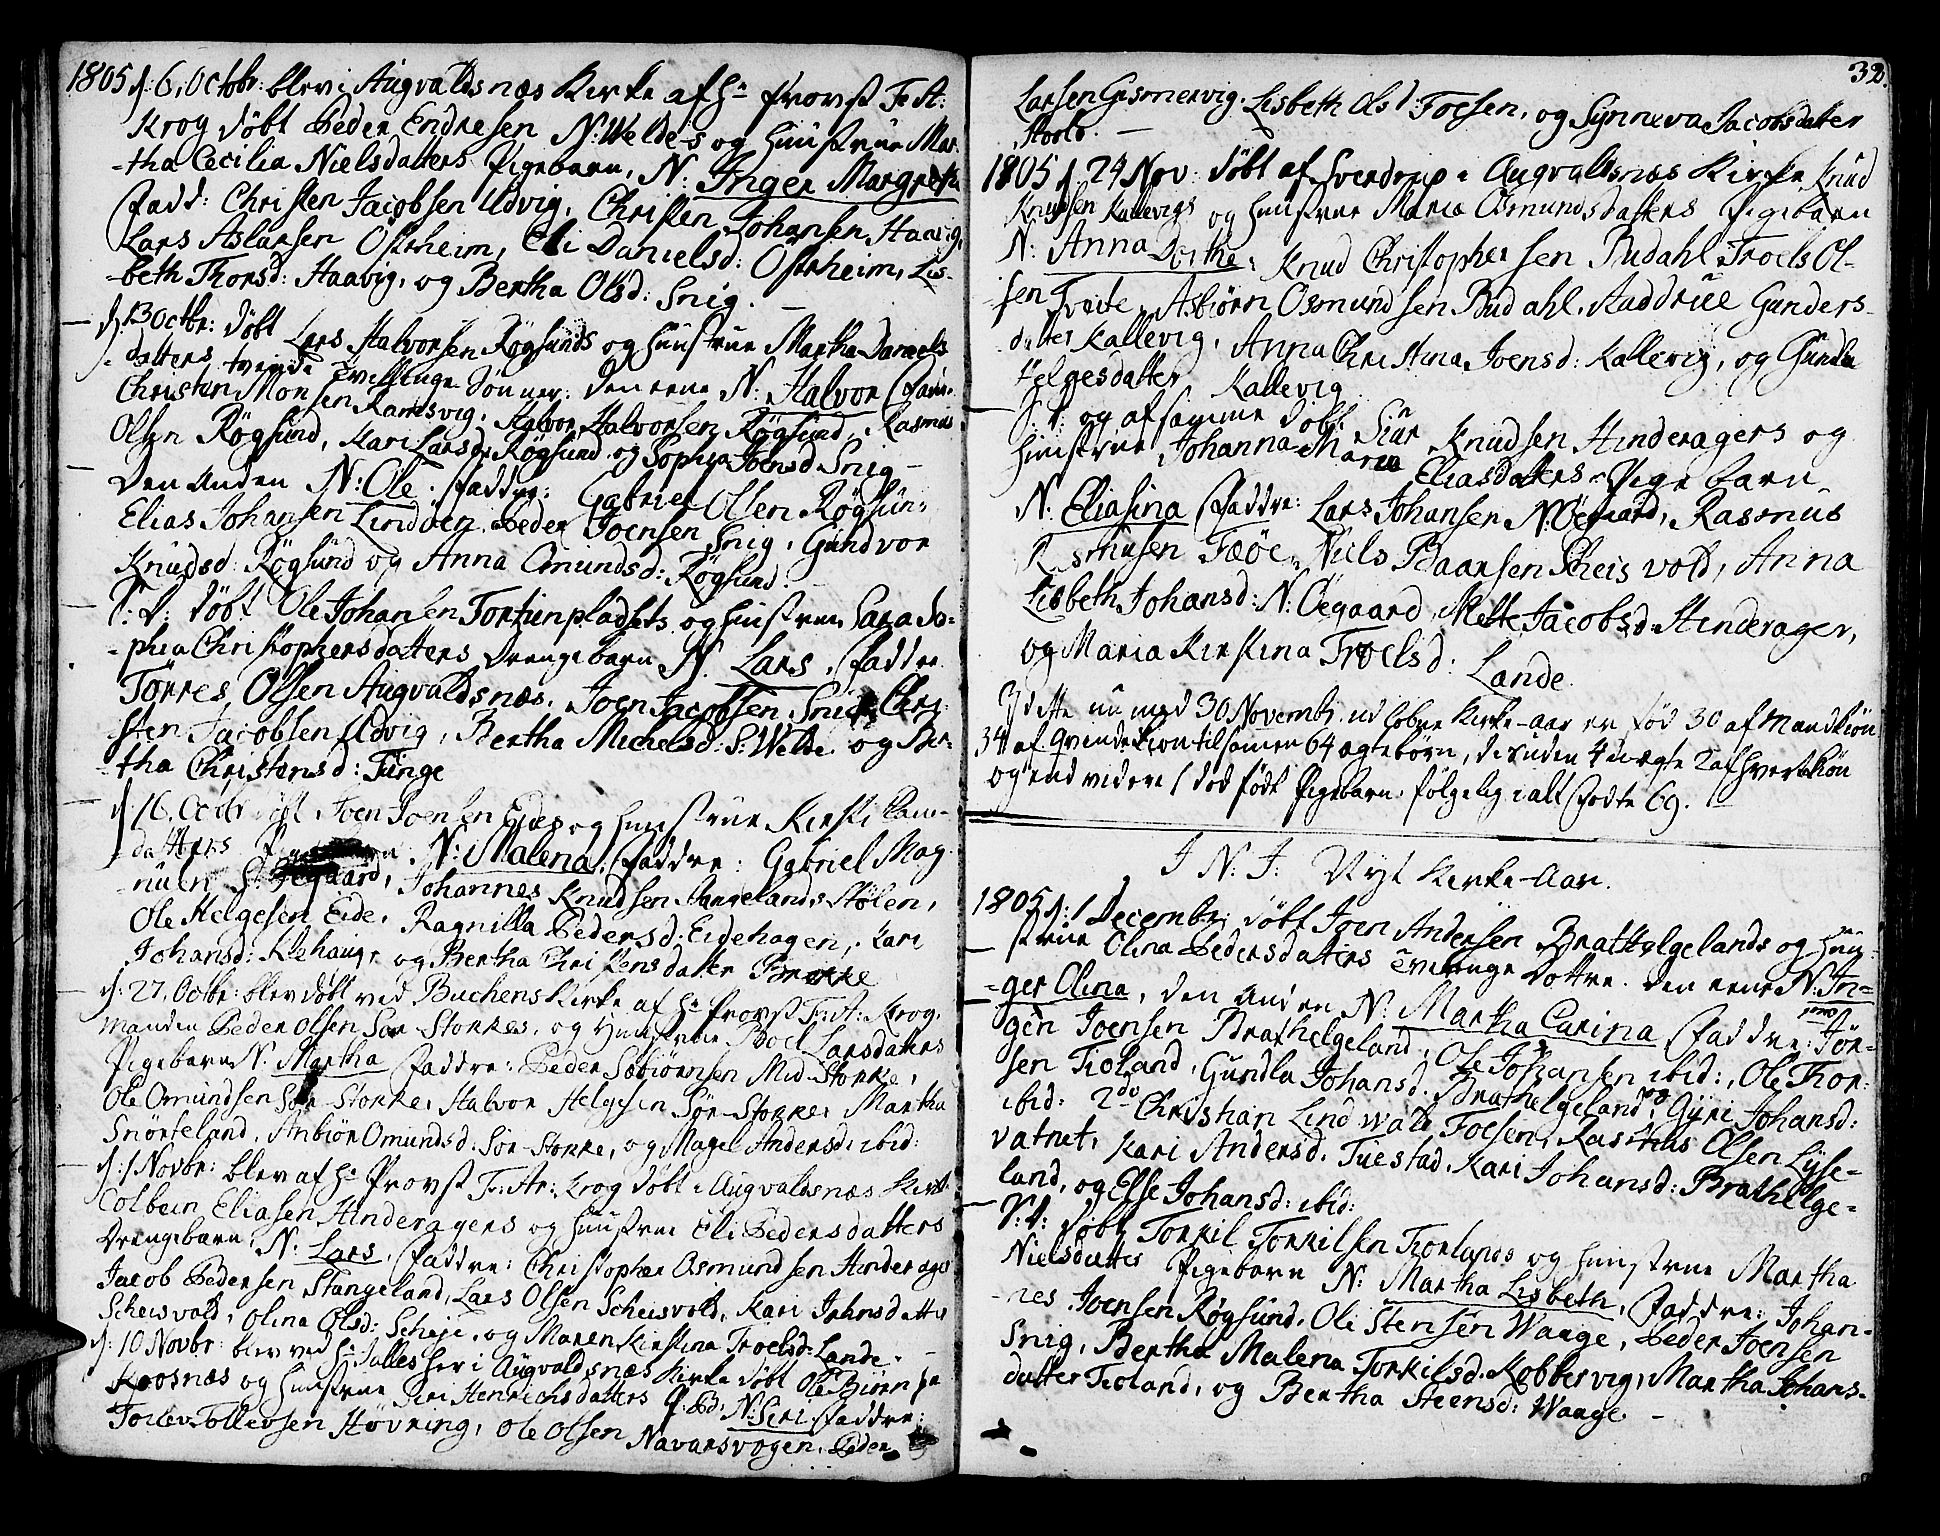 1805 d: 6. Octbr: blev i Augvaldsnæs Kirke af Hr Provst Fr: A:
Krog døbt Peder Endresen N: Welde-s og Hustrue Mar-
-tha Cecilia Nielsdatters Pigebarn, N: Inger Margreta
Fadd: Christen Jacobsen Udvig, Christen Johansen Haavig,
Lars Aslaksen Ostrheim, Eli Danielsd: Ostrheim, Lis-
-beth Thorsd: Haavig, og Bertha Olsd: Snig. —
— d: 13 Octbr: døbt Lars Halvorsen Røgsunds og Hustrue Martha Daniels
datters tvende Tvillinge Sønner: den eene N: Halvor Faddr:
Christen Monsen Ramsvig, Halvor Halvorsen Røgsund, Rasmus
Olsen Røgsund, Kari Larsd: Røgsund og Sophia Joensd Snig —
— Den Anden N: Ole. Faddre: Gabriel Olsen Røgsun:
Elias Johansen Lindøen, Peder Joensen Snig, Gundvor
Knudsd: Røgsund og Anna Omundsd: Røgsund.
— S: D: døbt Ole Johansen Tortunpladsets og Hustrue Sara So-
-phia Christophersdatters Drengebarn N. Lars, Faddre
Torres Olsen Augvaldsnæs, Joen Jacobsen Snig, Chri-
sten Jacobsen Udvig, Bertha Michelsd: S: Welde og Ber-
-tha Christensd: Tunge
— d: 16. Octbr døbt Joen Joensen Eides og Hustrue Kirsti
-datters N: Malena, Faddre: Gabriel Mag-
-nusen Øegaard, Johannes Knudsen Stangelands Stølen,
Ole Helgesen Eide, Ragnilla Pedersd: Eidehagen, Kari
Johansd: Klehaug, og Bertha Christensdatter Brekke
— d: 27. Octbr: blev døbt ved Buchens Kirke af Hr Provst Fr: A: Krog,
Manden Peder Olsen Sør-Storkes, og Hustrue Boel Larsdatters
Pigebarn N. Martha Faddre: Peder Sæbiørnsen Mid-Storke,
Ole Omundsen Sør-Storke, Halvor Helgesen Sør-Storke, Martha
Snørteland, Anbiør Omundsd: Sør-Storke, og Magel Andersd: ibid:
— d: 1 Novbr: blev af Hr Provst Fr: Ar: Krog døbt i Augvaldsnæs Kirke
Colbein Eliasen Hinderagers og Hustrue Eli Pedersdatters
Drengebarn, N: Lars, Faddre: Christopher Osmundsen Hinderager
Jacob Pedersen Stangeland, Lars Olsen Scheisvold, Kari Johnsdatter
Scheisvold, Olina Olsd: Scheje, og Maren Kirstina Troelsd: Lande. —
d: 10 Novbr: blev ved Hr Salles her i Augvaldsnæs Kirke døbt Ole Biørn
Koosnæs og Hustrue Siri Henrichsdatters P: Bd: N: Seri Faddre:
Tollev Tollevsen Høvring, Ole Olsen Navarsvogen, Peder
32.
Larsen Gismervig. Lisbeth Olsd: Foesen, og Synneva Jacobsdatter
Storb. —
1805 d. 24 Nov: døbt af Sverdrup i Augvaldsnæs Kirke Knud
Knudsen Kallevigs og Hustrue Maria Osmundsdatters Pigebarn
N: Anna Dorthe, Knud Christophersen Budahl, Troels Ol-
-sen Tveite, Asbiørn Osmundsen Budahl, Aaddrue Gunders-
datter Kallevig, Anna Christina Joensd: Kallevig, og Gunla
Helgesdatter Kallevig
— S: D: og af samme døbt Siur Knudsen Hinderagers og
Hustrue Johanna Maria Eliasdatters Pigebarn
N: Eliasina Faddre: Lars Johansen N: Øegaard, Rasmus
Rasmusen Fæøe, Niels Baarsen Scheisvold, Anna
Lisbeth Johansd: N: Øegaard, Mette Jacobsd: Hinderager,
og Maria Kirstina Troelsd: Lande.
I dette nu med 30 Novembr. udløbne Kirke-Aar er fød 30 af Mandkiøn
34 af Qvindekiøn tilsamen 64 ægteborn, desuden 4 uægte 2 af hvert kiøn
og endvidere 1 dødfødt Pigebarn. følgelig i alt Fødte 69.
I N. J: Nyt Kirke-Aar.
1805 d: 1 Decembr: døbt Joen Andersen Brathelgelands og Hu-
— strue Olina Pedersdatters Tvillinge Døttre. Den eene N: In-
-ger Olina, Den Anden N: Martha Carina Faddre: 1mo Jør-
gen Joensen Brathelgeland, Ole Johansen ibid:, Ole Thor-
sen Tioland, Gundla Johansd: Brathelgeland, og Gyri Johansd:
ibid: 2do Christian Lindwall Foesen, Rasmus Olsen Lyse-
vatnet, Kari Andersd. Tuestad, Kari Johansd: Brathelge-
land, og Else Johansd: ibid:
— S: D: døbt Torkil Torkilsen Tiorlands og Hustrue Martha
Nielsdatters Pigebarn N: Martha Lisbeth, Faddre: Johan-
-nes Joensen Røgsund, Ole Stensen Waage, Peder Joensen
Snig, Bertha Malena Torkilsd: Kobbervig, Martha Johans-
datter Tioland, og Bertha Steensd: Waage. —